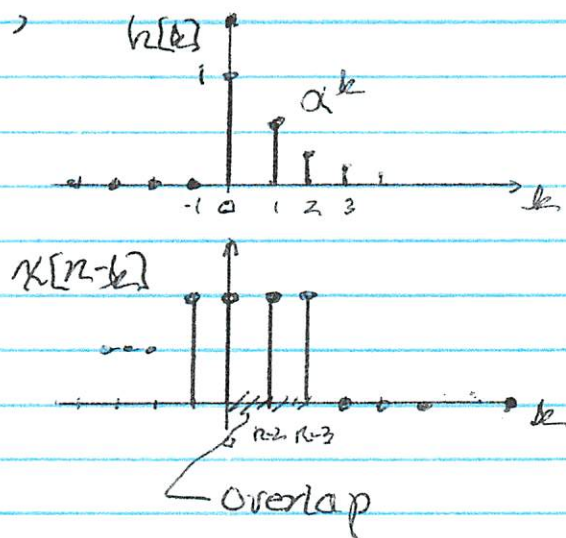 h[k]
1
α^k
-1 0 1 2 3 k
x[n-k]
n-2 n-3 k
overlap